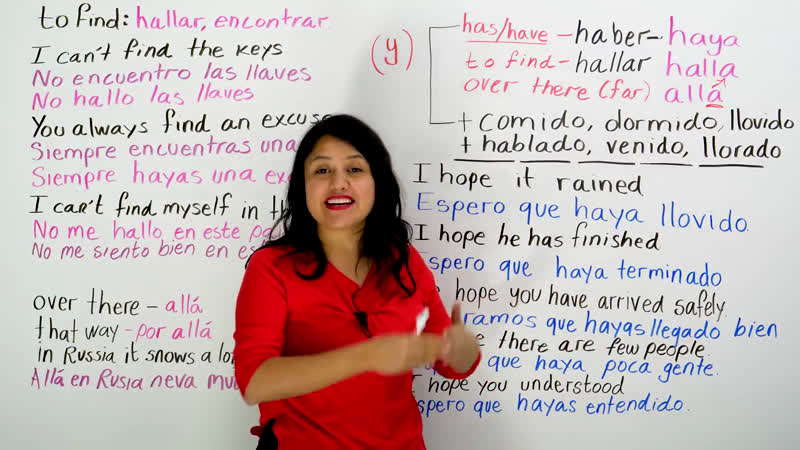 to find: hallar, encontrar
I can't find the keys
No encuentro las llaves
No hallo las llaves
You always find an excuse
Siempre encuentras una
Siempre hayas una
I can't find myself in
No me hallo en este
No me siento bien en
over there - allá
that way - por allá
in Russia it snows a
Allá en Rusia neva
(y)
has/have - haber - haya
to find - hallar halla
over there (far) allá
+ comido, dormido, llovido
+ hablado, venido, llorado
I hope it rained
Espero que haya llovido
I hope he has finished
que haya terminado
hope you have arrived safely.
que hayas llegado bien
there are few people.
que haya poca gente.
I hope you understood
que hayas entendido.